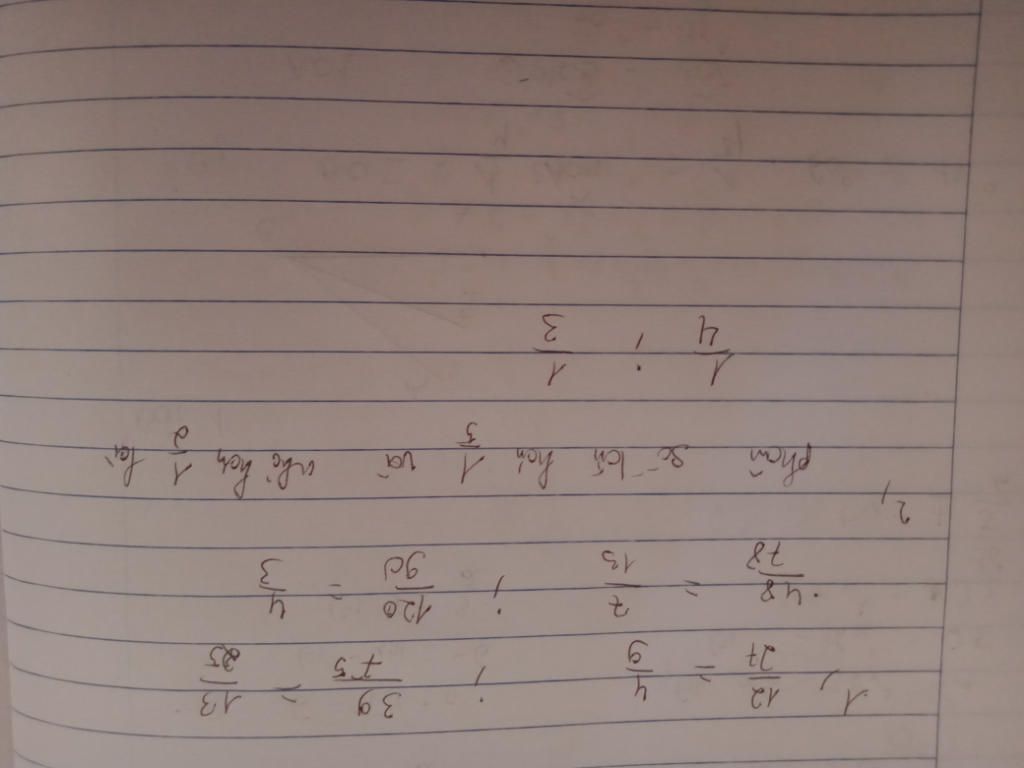 1, 12/27 = 4/9 ; 39/75 = 13/25
48/78 = 7/13 ; 120/90 = 4/3
2, phân số lớn hơn 1/5 và nhỏ hơn 1/2 là
1/4 ; 1/3